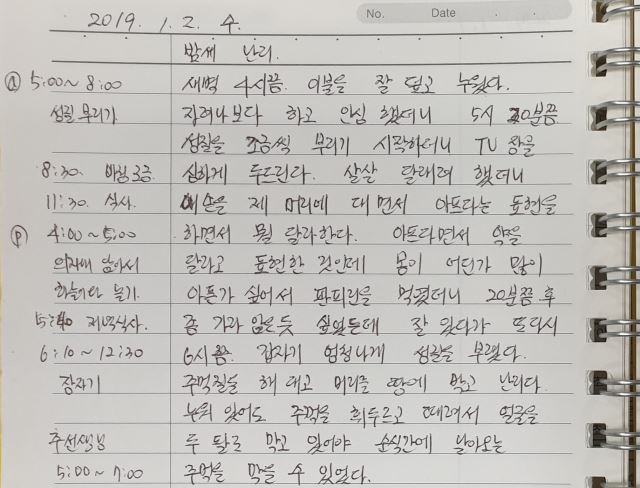 No. Date
2019. 1. 2. 수.
밤새 난리.
Ⓐ 5:00~8:00 새벽 4시쯤. 이불을 잘 덮고 누웠다.
성질 부리기 자려나보다 하고 안심 했더니 5시 20분쯤
성질을 조금씩 부리기 시작하더니 TV 장을
8:30. 아침 조금. 심하게 두드린다. 살살 달래려 했더니
11:30. 식사. 내 손을 제 머리에 대면서 아프다는 표현을
Ⓟ 4:00~5:00 하면서 뭘 달라한다. 아프다면서 약을
의자에 앉아서 달라고 표현한 것인데 몸이 어딘가 많이
놀기. 아픈가 싶어서 판피린을 먹였더니 20분쯤 후
5:40 저녁식사. 좀 가라 앉은듯 싶었는데 잘 있다가 또다시
6:10~12:30 6시쯤. 갑자기 엄청나게 성질을 부렸다.
잠자기 주먹질을 해 대고 머리를 땅에 박고 난리다.
누워 있어도 주먹을 휘두르고 때려서 얼굴을
주선생님 두 팔로 막고 있어야 순식간에 날아오는
5:00~7:00 주먹을 막을 수 있었다.